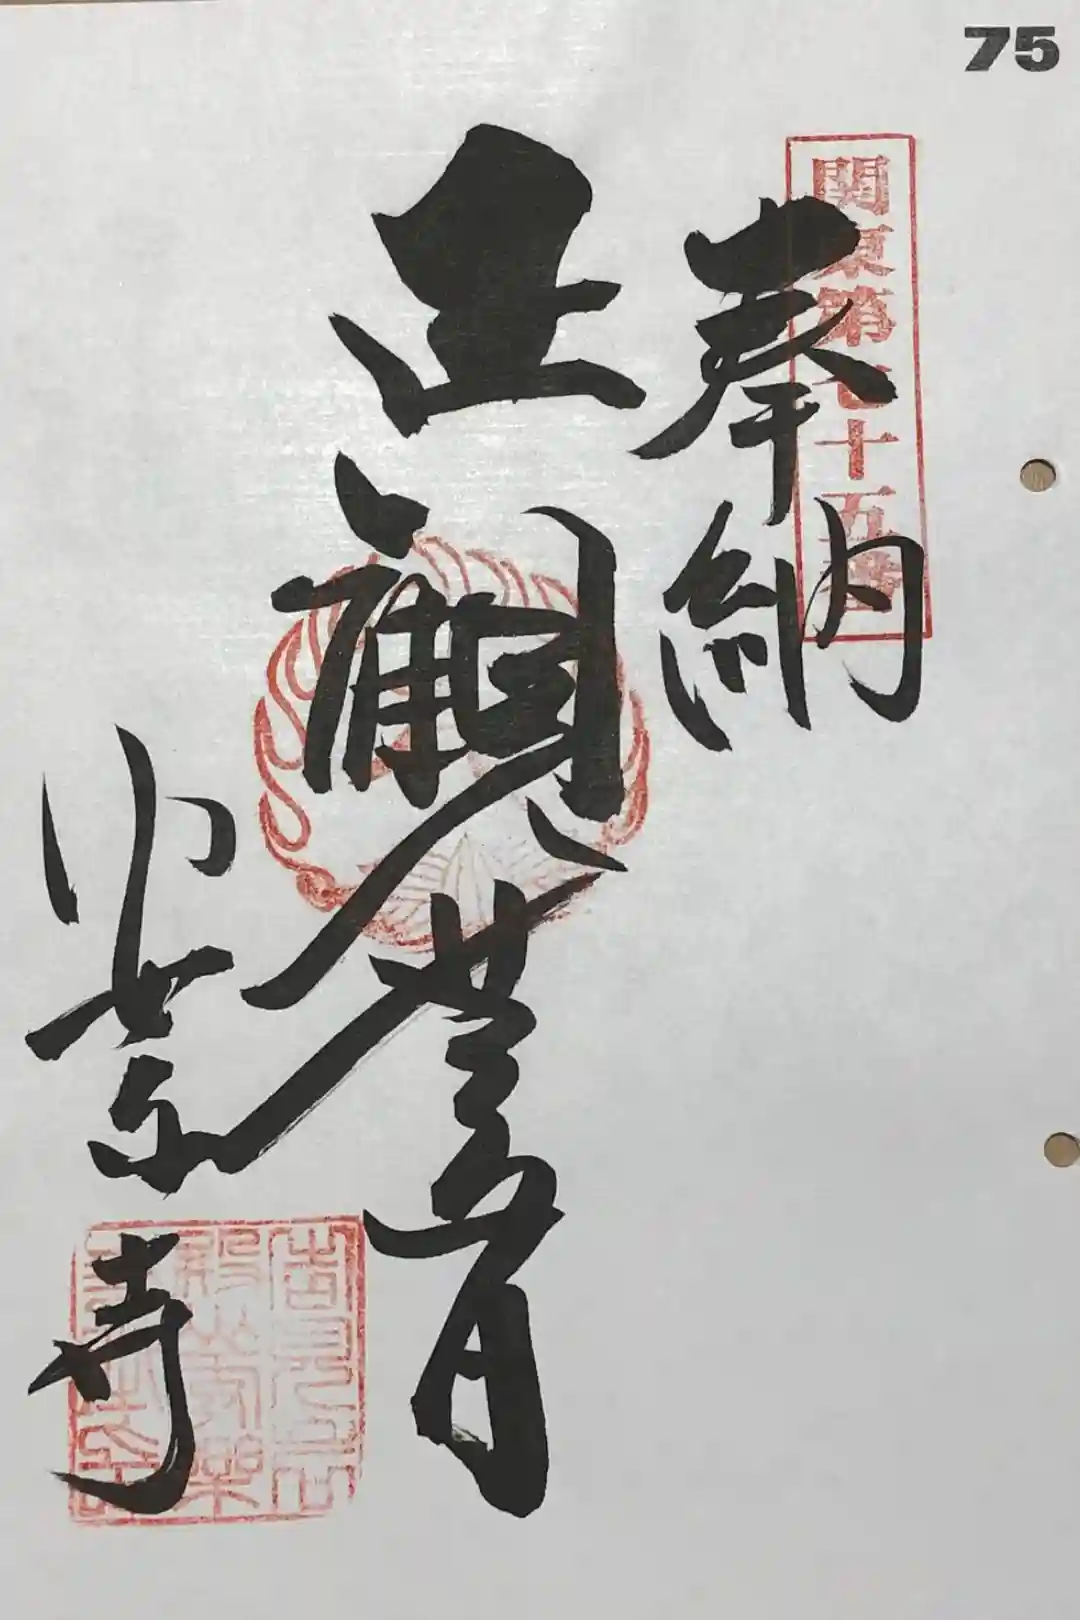 75
関東第七十五番
奉納
聖観世音
安楽寺